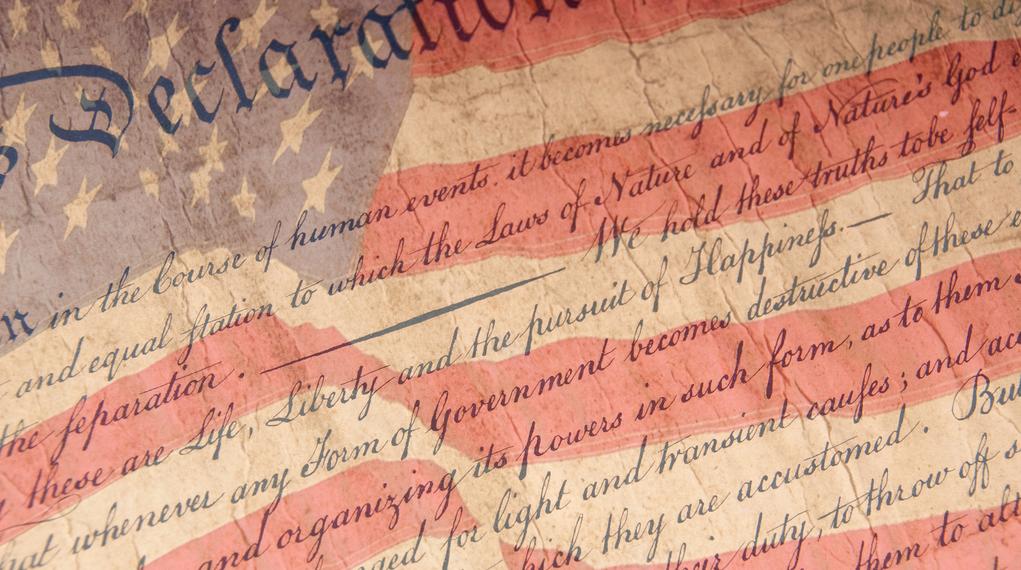 Declaration
in the Course of human events. it becomes necessary for one people to
and equal station to which the Laws of Nature and of Nature's God
the separation. — We hold these truths to be self-
these are Life, Liberty and the pursuit of Happiness.— That to
whenever any Form of Government becomes destructive of these
and organizing its powers in such form, as to them
for light and transient causes; and
they are accustomed. But
duty, to throw off
them to